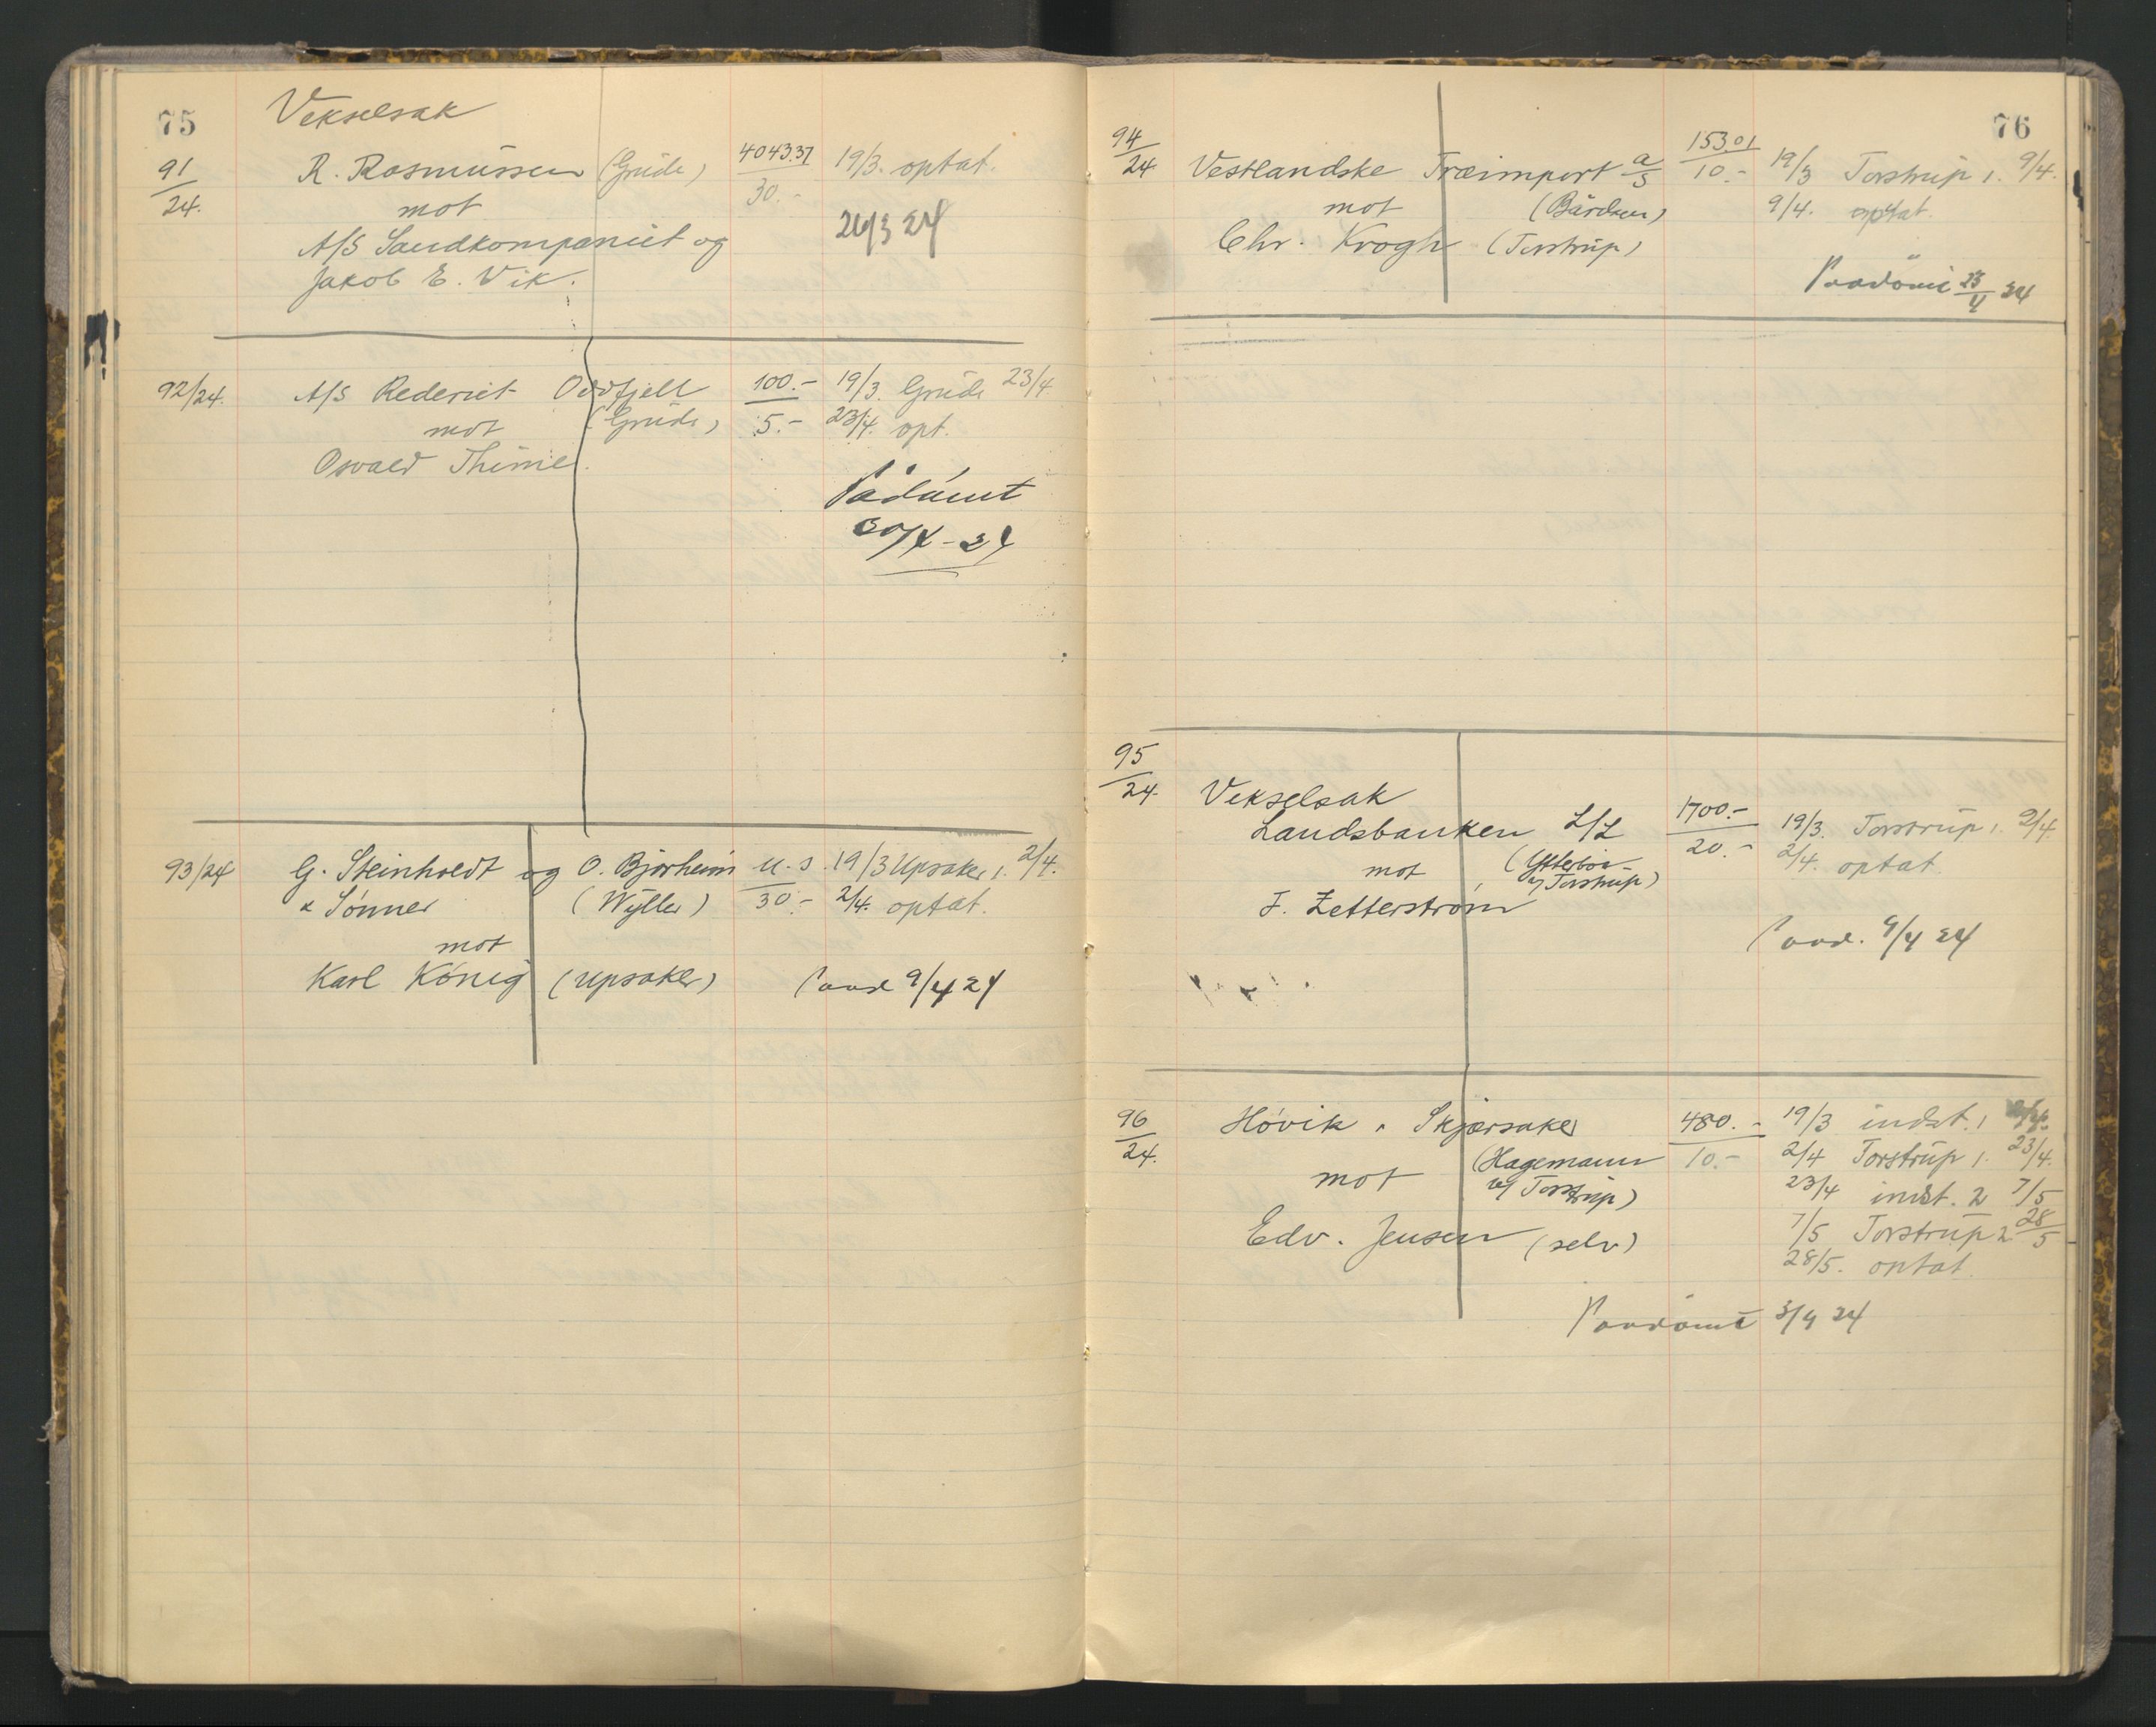 75
Vekselsak
91/24. R. Rasmussen (Grude) 4043.37 19/3. optat.
mot 30.-
A/S Sandkompaniet og 26/3 24
Jakob E. Vik.
92/24. A/S Rederiet Oddfjell 100.- 19/3. Grude 23/4
mot (Grude) 5.- 23/4. opt.
Osvald Thime.
Pådømt
30/4-24
93/24 G. Steinholdt og O. Bjørheim u.s. 19/3 Upsaker 1. 2/4.
& Sønner (Wyller) 30.- 2/4. optat.
mot
Karl König (Upsaker) Paad 9/4 24
76
94/24. Vestlandske Træimport a/s 153.01 19/3 Torstrup 1. 9/4.
mot (Bårdsen) 10.- 9/4. optat.
Chr. Krogh (Torstrup)
Paadömt 23/4 24
95/24.
Vekselsak
Landsbanken L/L 1700.- 19/3. Torstrup 1. 2/4.
mot (Ytterbøe 20.- 2/4. optat.
v/ Torstrup)
F. Zetterstrøm
Paad. 9/4 24
96/24. Høvik & Skjørsaker 480.- 19/3 indst. 1
(Hagemann 10.- 2/4 Torstrup 1. 23/4.
mot v/ Torstrup) 23/4 indst. 2 7/5
Edv. Jensen (selv) 7/5 Torstrup 2 28/5
28/5. optat.
Paadömt 24